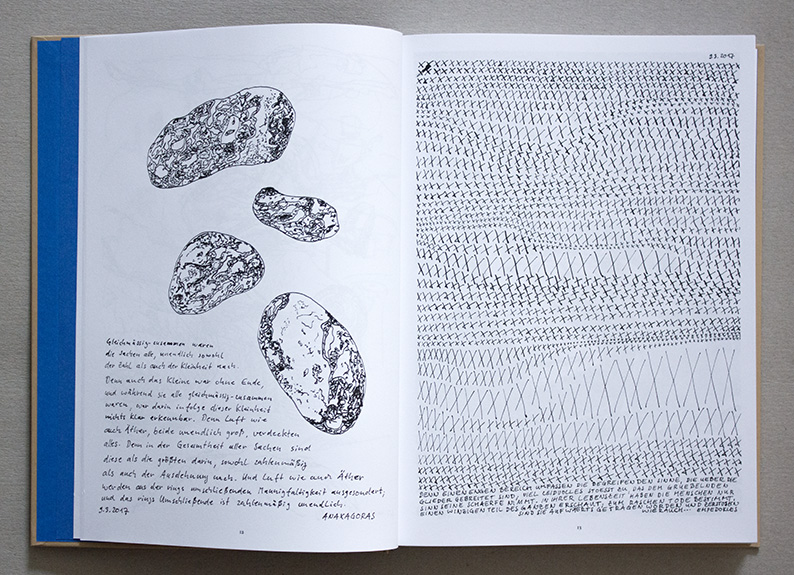 Gleichmässig-zusammen waren
die Sachen alle, unendlich sowohl
der Zahl als auch der Kleinheit nach.
Denn auch das Kleine war ohne Ende,
und während sie alle gleichmässig-zusammen
waren, war darin infolge dieser Kleinheit
nichts klar erkennbar. Denn Luft wie
auch Äther, beide unendlich groß, verdeckten
alles. Denn in der Gesamtheit aller Sachen sind
diese als die größten darin, sowohl zahlenmäßig
als auch der Ausdehnung nach. Und Luft wie auch Äther
werden aus der rings umschließenden Mannigfaltigkeit ausgesondert,
und das rings Umschließende ist zahlenmäßig unendlich.
9.3.2017
ANAXAGORAS
12
9.3.2017
DENN EINEN ENGEN BEREICH UMFASSEN DIE BEGREIFENDEN SINNE, DIE UEBER DIE
GLIEDER GEBREITET SIND, VIEL LEIDVOLLES STOESST ZU, DAS DEM GRÜBELNDEN
SINN SEINE SCHAERFE NIMMT. IN IHRER LEBENSZEIT HABEN DIE MENSCHEN NUR
EINEN WINZIGEN TEIL DES GANZEN ERSCHAUT, ZUM RASCHEN TODE BESTIMMT,
SIND SIE AUFWAERTS GETRAGEN WORDEN UND ZERSTOBEN
WIE RAUCH... EMPEDOKLES
13